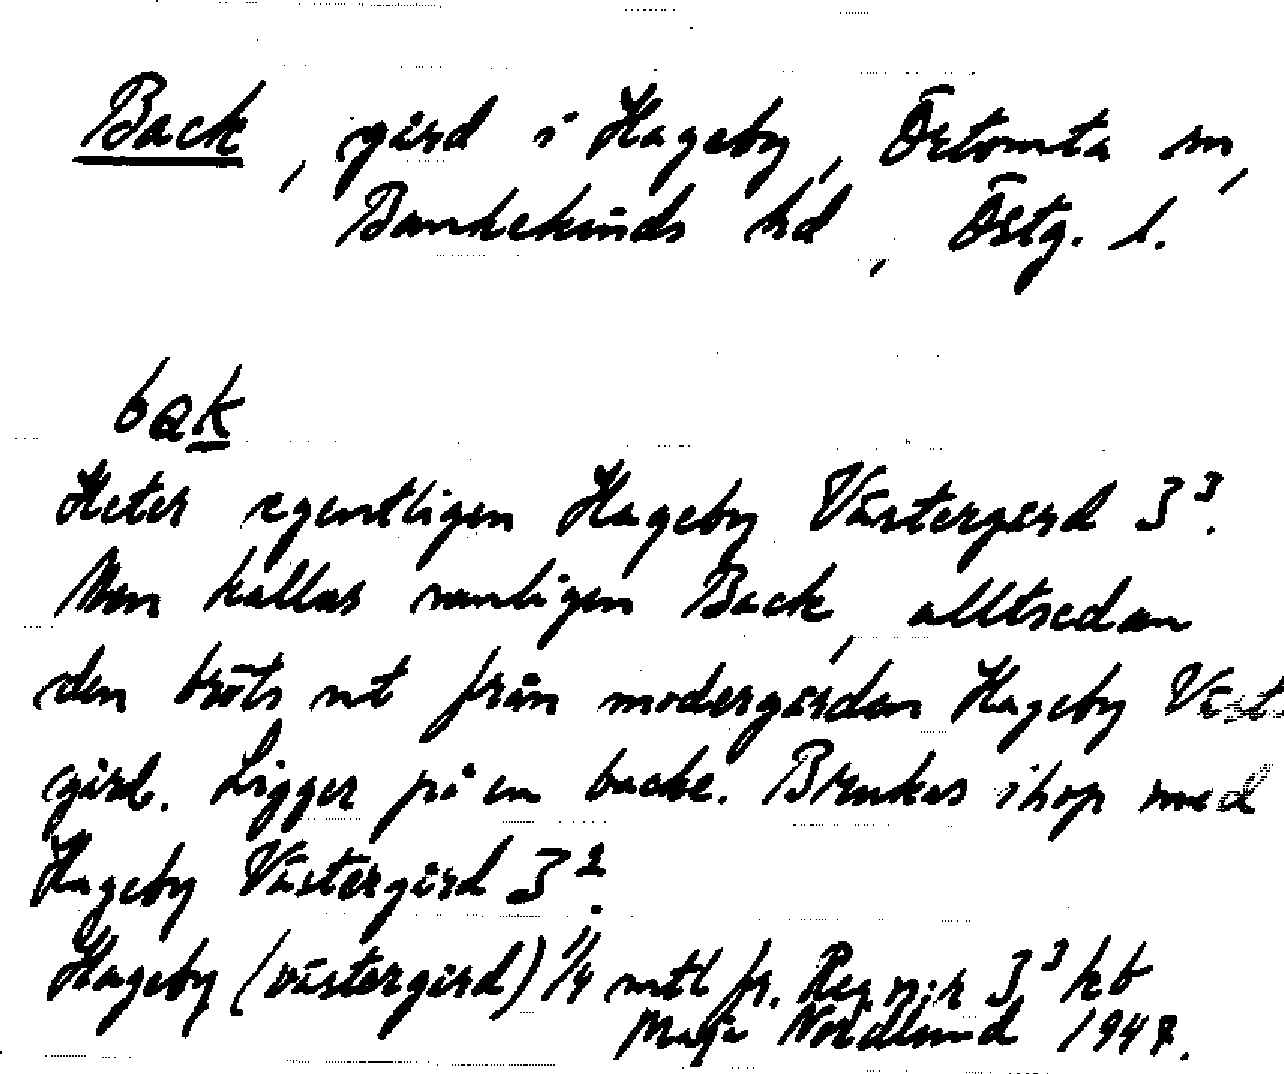 Back, gård i Hageby, Östomta sn,
Bankekinds hd, Östg. l.
bak
Heter egentligen Hageby Västergård 3³.
Men kallas vanligen Back, alltsedan
den bröts ut från modergården Hageby Väst
gård. Ligger på en backe. Brukas ihop med
Hageby Västergård 3².
Hageby (västergård) 1/4 mtl fr. Reg nr 3³ kb
Maja Nordlund 1947.